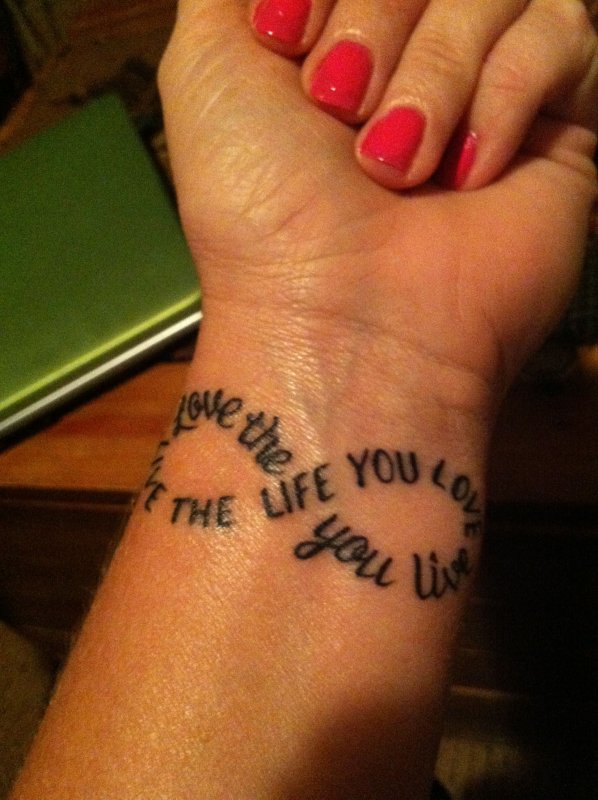 Love the
LIVE THE LIFE YOU LOVE
you live